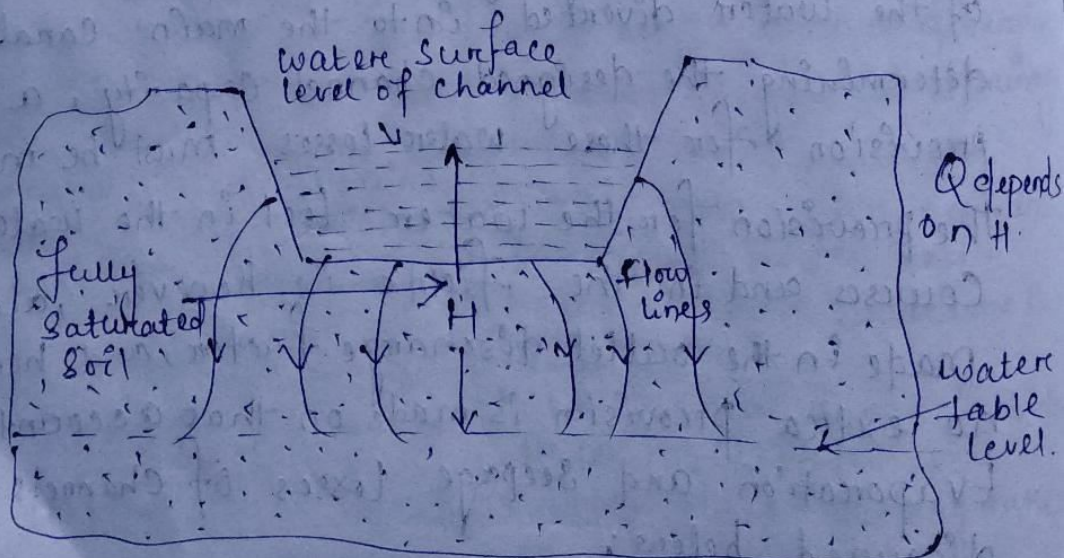 watere surface
level of channel
Q depends
on H.
fully
saturated
soil
H
flow
lines
watere
table
level.